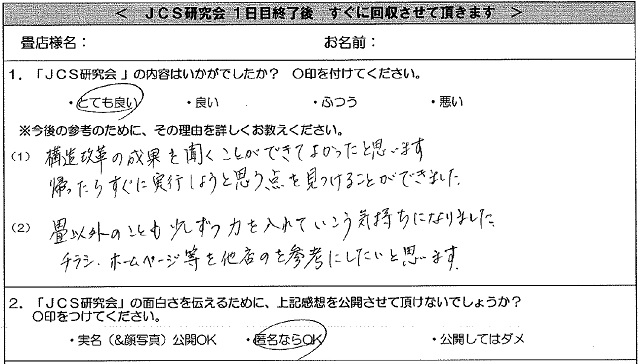 < ＪＣＳ研究会 １日目終了後　すぐに回収させて頂きます >
畳店様名：　お名前：
１．「ＪＣＳ研究会」の内容はいかがでしたか？　○印を付けてください。
・とても良い　・良い　・ふつう　・悪い
※今後の参考のために、その理由を詳しくお教えください。
(1) 構造改革の成果を聞くことができてよかったと思います
帰ったらすぐに実行しようと思う点を見つけることができました
(2) 畳以外のことも少しずつ力を入れていこう気持ちになりました
チラシ、ホームページ等を他店のを参考にしたいと思います。
２．「ＪＣＳ研究会」の面白さを伝えるために、上記感想を公開させて頂けないでしょうか？
○印をつけてください。
・実名（&顔写真）公開OK　・匿名ならOK　・公開してはダメ